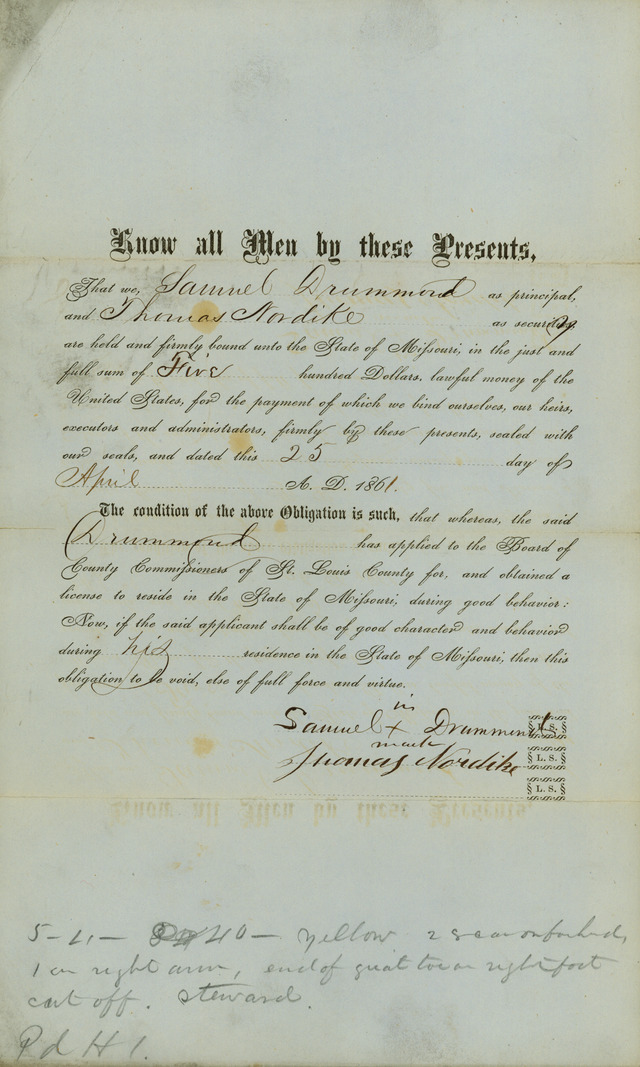 Know all Men by these Presents,
That we, Samuel Drummond as principal,
and Thomas Nordike as security
are held and firmly bound unto the State of Missouri, in the just and
full sum of Five hundred Dollars, lawful money of the
United States, for the payment of which we bind ourselves, our heirs,
executors and administrators, firmly by these presents, sealed with
our seals, and dated this 25 day of
April A. D. 1861.
The condition of the above Obligation is such, that whereas, the said
Drummond has applied to the Board of
County Commissioners of St. Louis County for, and obtained a
license to reside in the State of Missouri, during good behavior:
Now, if the said applicant shall be of good character and behavior
during his residence in the State of Missouri, then this
obligation to be void, else of full force and virtue.
his
Samuel X Drummond L. S.
mark
Thomas Nordike L. S.
L. S.
5-11- 40- yellow 2 scar on forehead,
1 on right arm, end of great toe on right foot
cut off. Steward.
Pd H 1.